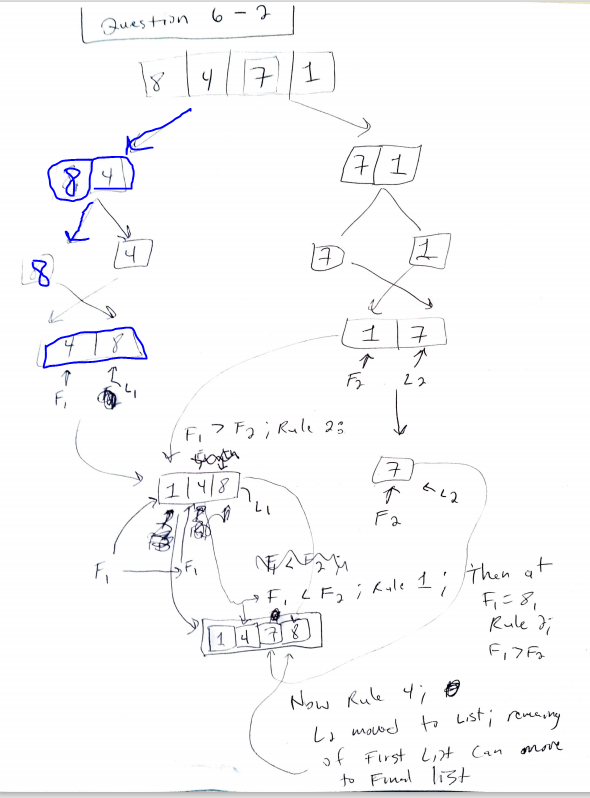 Question 6-2
8 4 7 1
8 4
7 1
8
4
7
1
4 8
1 7
F1 L1
F2 L2
F1 > F2 ; Rule 2;
1 4 8
L1
7
L2
F2
F1 F1
F1 < F2 ; Rule 1 ;
1 4 7 8
Then at
F1 = 8,
Rule 2;
F1 > F2
Now Rule 4;
L2 moved to List; remaing
of First List can move
to Final list